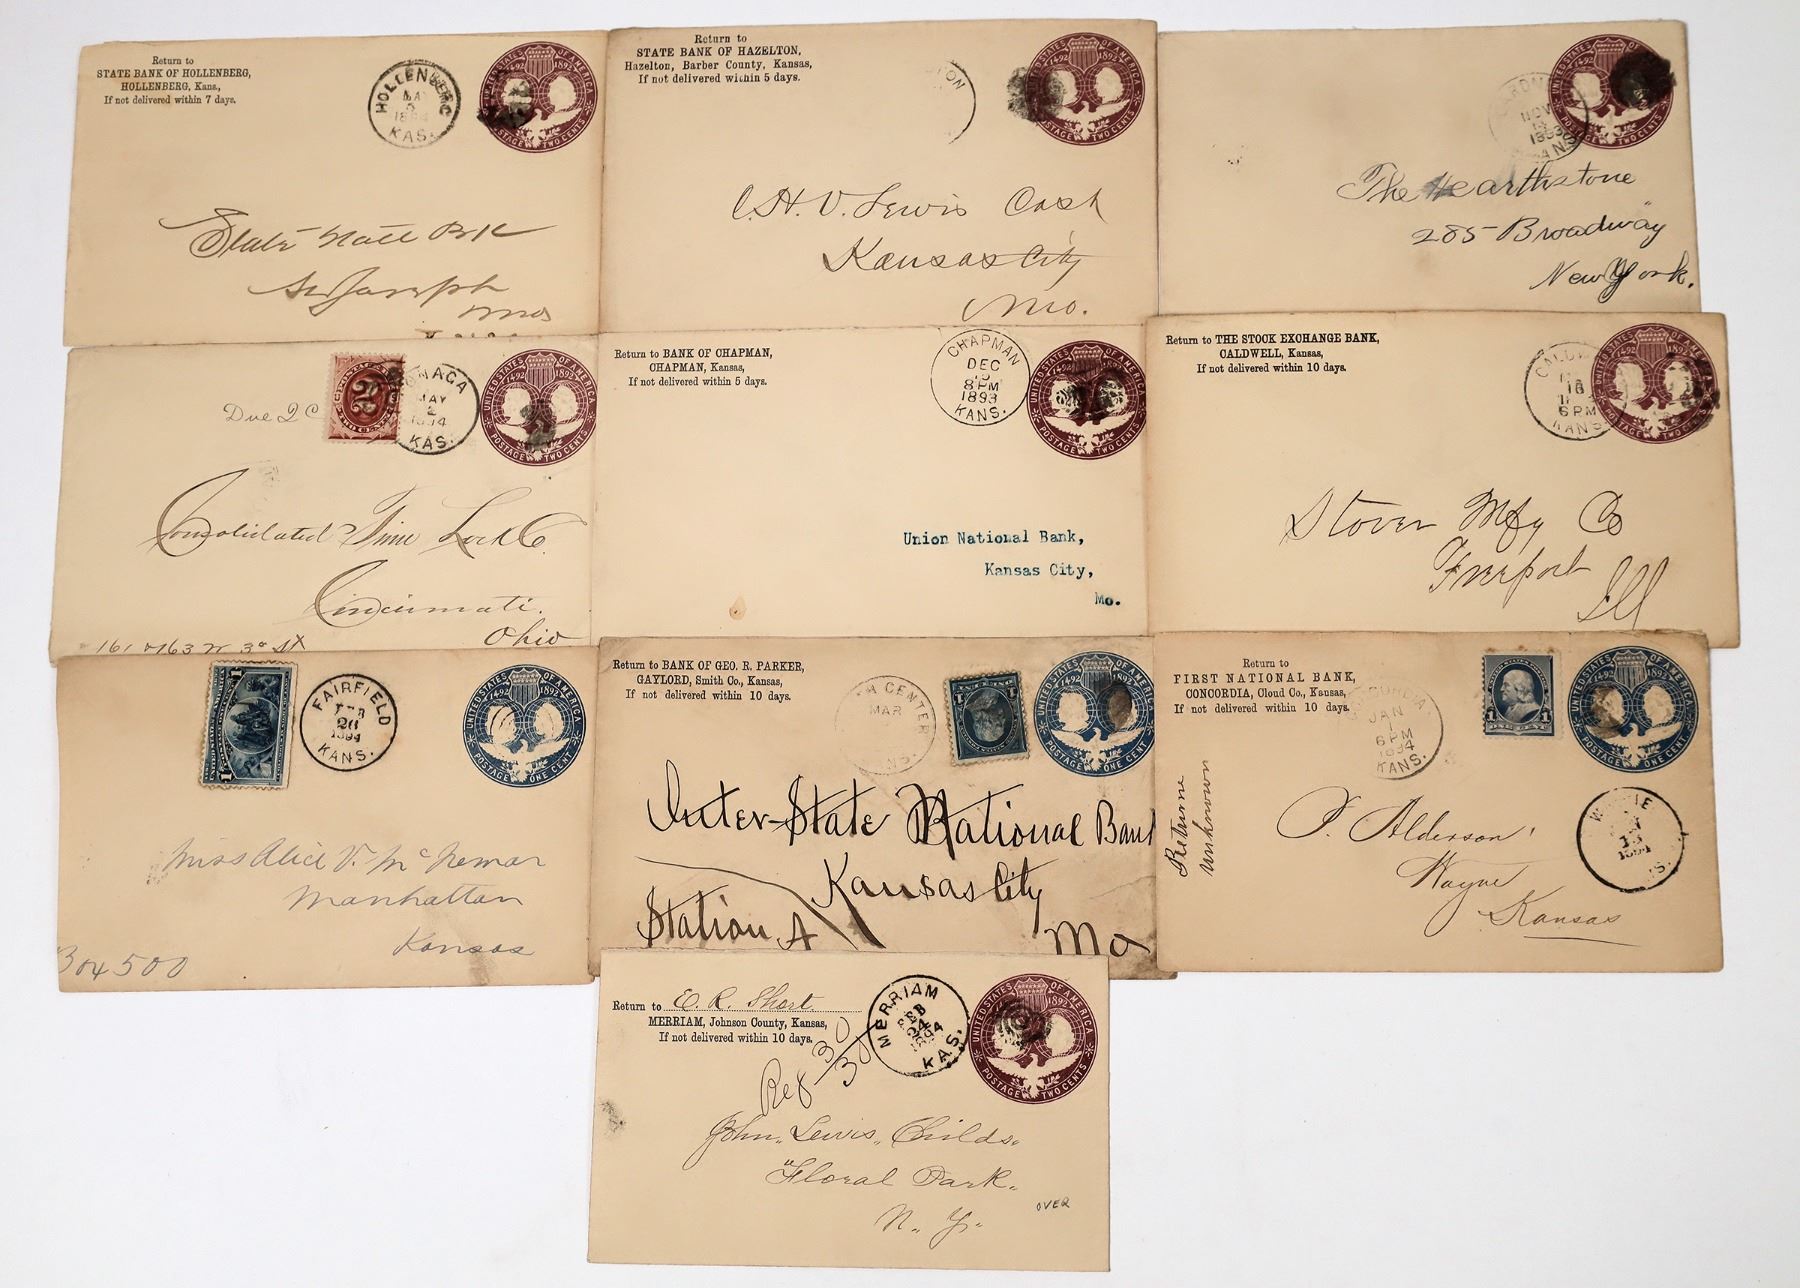 Return to
STATE BANK OF HOLLENBERG,
HOLLENBERG, Kans.,
If not delivered within 7 days.
HOLLENBERG
KAS.
UNITED STATES OF AMERICA
1492 1892
POSTAGE TWO CENTS
State Natl Bk
St Joseph
Return to
STATE BANK OF HAZELTON,
Hazelton, Barber County, Kansas,
If not delivered within 5 days.
UNITED STATES OF AMERICA
1492 1892
POSTAGE TWO CENTS
C.H.V. Lewis Cash
Kansas City
Mo.
NOV
1893
UNITED STATES OF AMERICA
1492 1892
POSTAGE TWO CENTS
The Hearthstone
285 Broadway
New York.
Due 2 C
MAY
2
1894
KAS.
UNITED STATES OF AMERICA
1492 1892
POSTAGE TWO CENTS
Consolidated Time Lock Co.
Cincinnati.
Ohio
161 & 163 W 3d St
Return to BANK OF CHAPMAN,
CHAPMAN, Kansas,
If not delivered within 5 days.
CHAPMAN
DEC
8 PM
1893
KANS.
UNITED STATES OF AMERICA
1492 1892
POSTAGE TWO CENTS
Union National Bank,
Kansas City,
Mo.
Return to THE STOCK EXCHANGE BANK,
CALDWELL, Kansas,
If not delivered within 10 days.
16
6 PM
KANS
UNITED STATES OF AMERICA
1492 1892
POSTAGE TWO CENTS
Stover Mfg Co
Freeport
Ill
1 1
FAIRFIELD
FEB
26
1894
KANS.
UNITED STATES OF AMERICA
1492 1892
POSTAGE ONE CENT
Miss Alice V. McNemar
Manhattan
Kansas
304500
Return to BANK OF GEO. R. PARKER,
GAYLORD, Smith Co., Kansas,
If not delivered within 10 days.
CENTER
MAR
UNITED STATES OF AMERICA
1492 1892
POSTAGE ONE CENT
Inter-State National Bank
Kansas City
Station A
Mo
Return to
FIRST NATIONAL BANK,
CONCORDIA, Cloud Co., Kansas,
If not delivered within 10 days.
JAN
6 PM
1894
KANS.
1 1
UNITED STATES OF AMERICA
1492 1892
POSTAGE ONE CENT
Wayne
Kansas
1894
Unknown
Return to E. R. Short
MERRIAM, Johnson County, Kansas,
If not delivered within 10 days.
MERRIAM
FEB
24
1894
KAS.
UNITED STATES OF AMERICA
1892
POSTAGE TWO CENTS
30
30
John Lewis Childs
"Floral Park
N. Y.
OVER